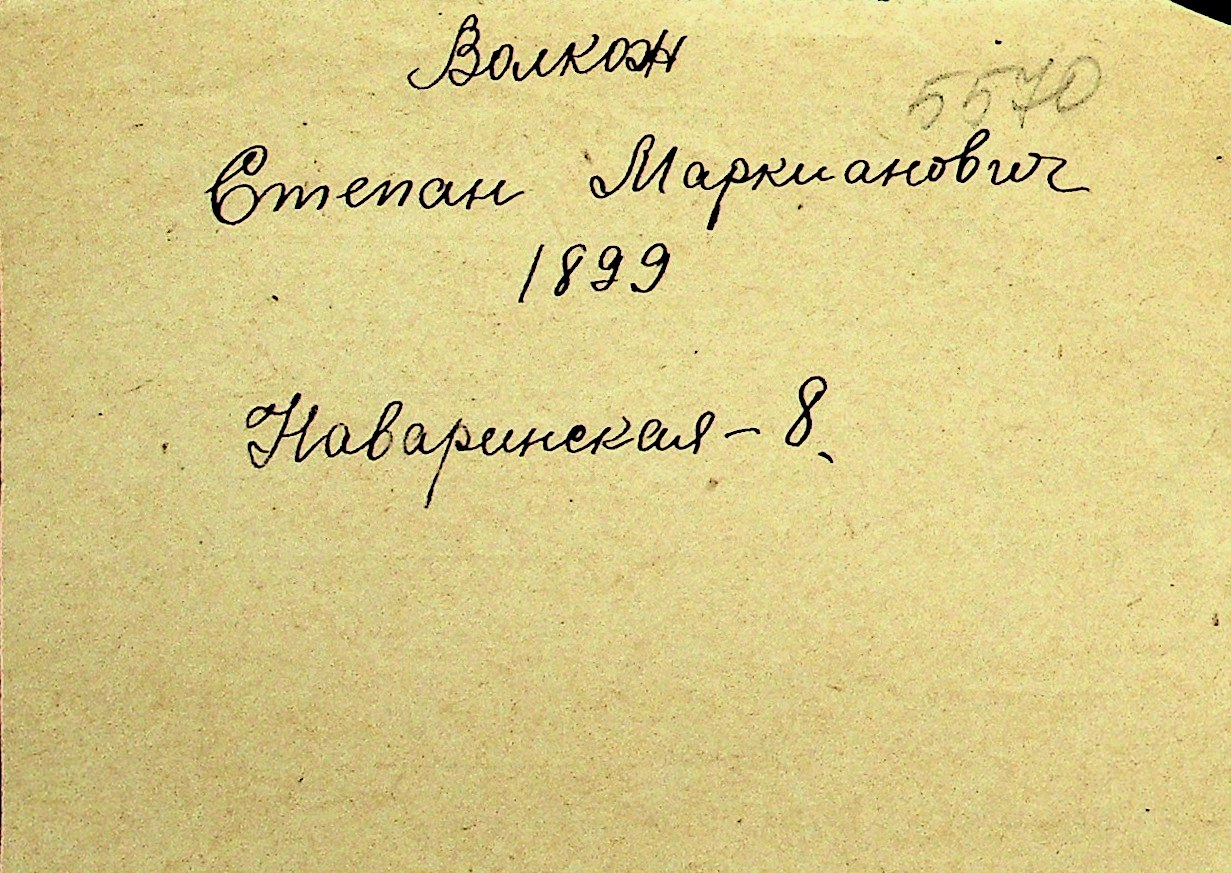 Волкож
5570
Степан Маркианович
1899
Наваринская – 8.